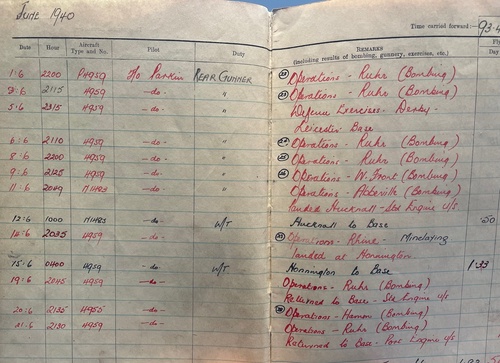 JUNE 1940
Time carried forward:- 93.4
Date Hour Aircraft Type and No. Pilot Duty REMARKS (including results of bombing, gunnery, exercises, etc.)
1:6 2200 P4959 F/o Parkin REAR GUNNER Operations - Ruhr (Bombing)
2115 4959 -do- " Operations - Ruhr (Bombing)
5:6 2315 4959 -do- " Defence Exercises - Derby -
Leicester - Base
6:6 2110 4959 -do- " Operations - Ruhr (Bombing)
8:6 2200 4959 -do- " Operations - Ruhr (Bombing)
9:6 2125 4959 -do- " Operations - W. Front (Bombing)
11:6 -do- " Operations - Abbeville (Bombing)
Landed Hucknall - Stbd Engine u/s
12:6 1000 -do- W/T Hucknall to Base .50
14:6 2035 4959 -do- Operations - Rhine - Minelaying
landed at Honnington
15:6 0400 4959 -do- W/T Honnington to Base 1.33
19:6 2045 4959 -do- Operations - Ruhr (Bombing)
Returned to Base - Stb Engine u/s
20:6 2135 -do- Operations - Hamm (Bombing)
21:6 2130 4959 -do- Operations - Ruhr (Bombing)
Returned to Base - Port Engine u/s